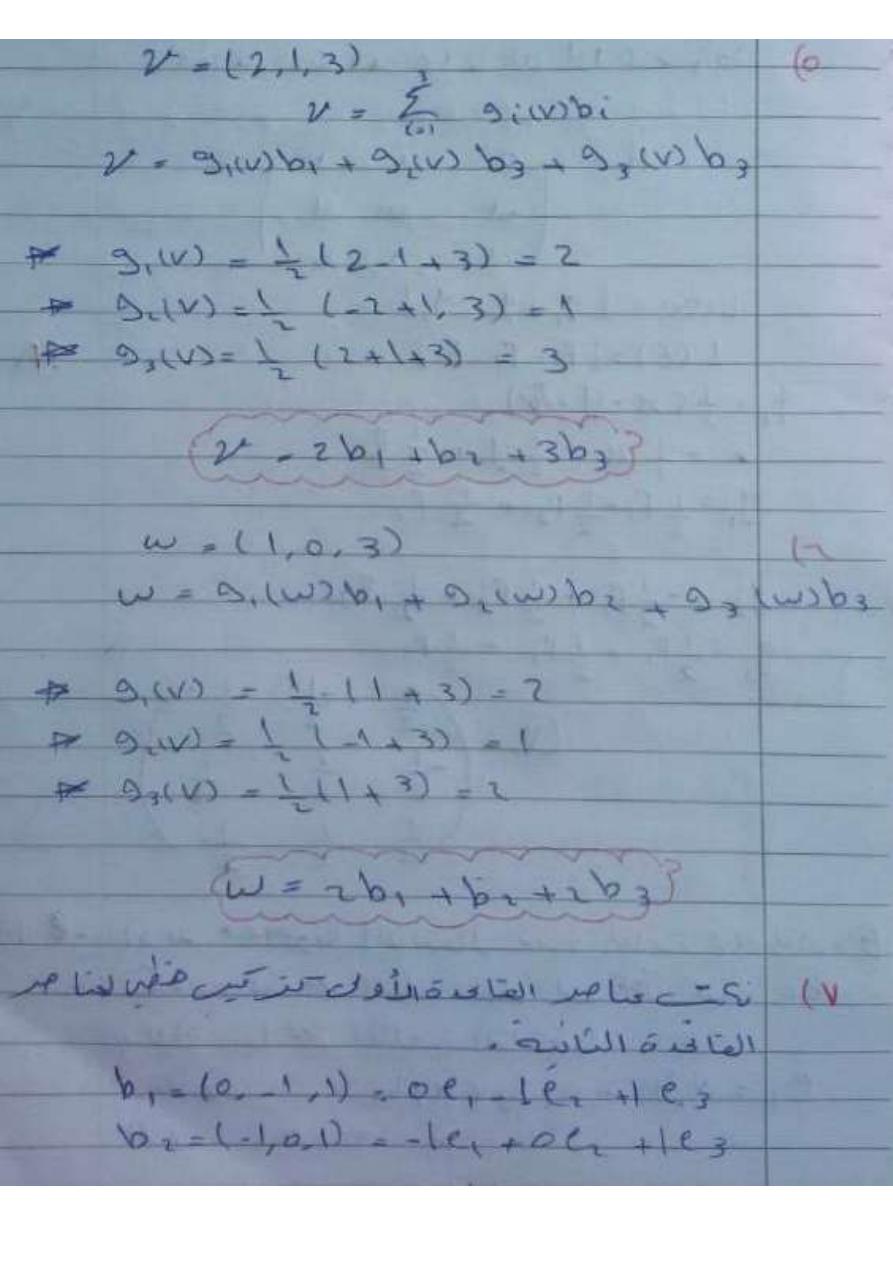 v = (2, 1, 3) (٥
v = Σ³ᵢ₌₁ gᵢ(v)bᵢ
v = g₁(v)b₁ + g₂(v) b₃ + g₃(v) b₃
g₁(v) = 1/2 (2-1+3) = 2
g₂(v) = 1/2 (-2+1, 3) = 1
g₃(v) = 1/2 (2+1+3) = 3
v = 2b₁ + b₂ + 3b₃
w = (1, 0, 3) (٦
w = g₁(w)b₁ + g₂(w)b₂ + g₃(w)b₃
g₁(v) = 1/2 (1+3) = 2
g₂(v) = 1/2 (-1+3) = 1
g₃(v) = 1/2 (1+3) = 2
w = 2b₁ + b₂ + 2b₃
٧) نكتب عناصر القاعدة الأولى كتركيب خطي لعناصر
القاعدة الثانية.
b₁ = (0, -1, 1) = 0e₁ - 1e₂ + 1e₃
b₂ = (-1, 0, 1) = -1e₁ + 0e₂ + 1e₃